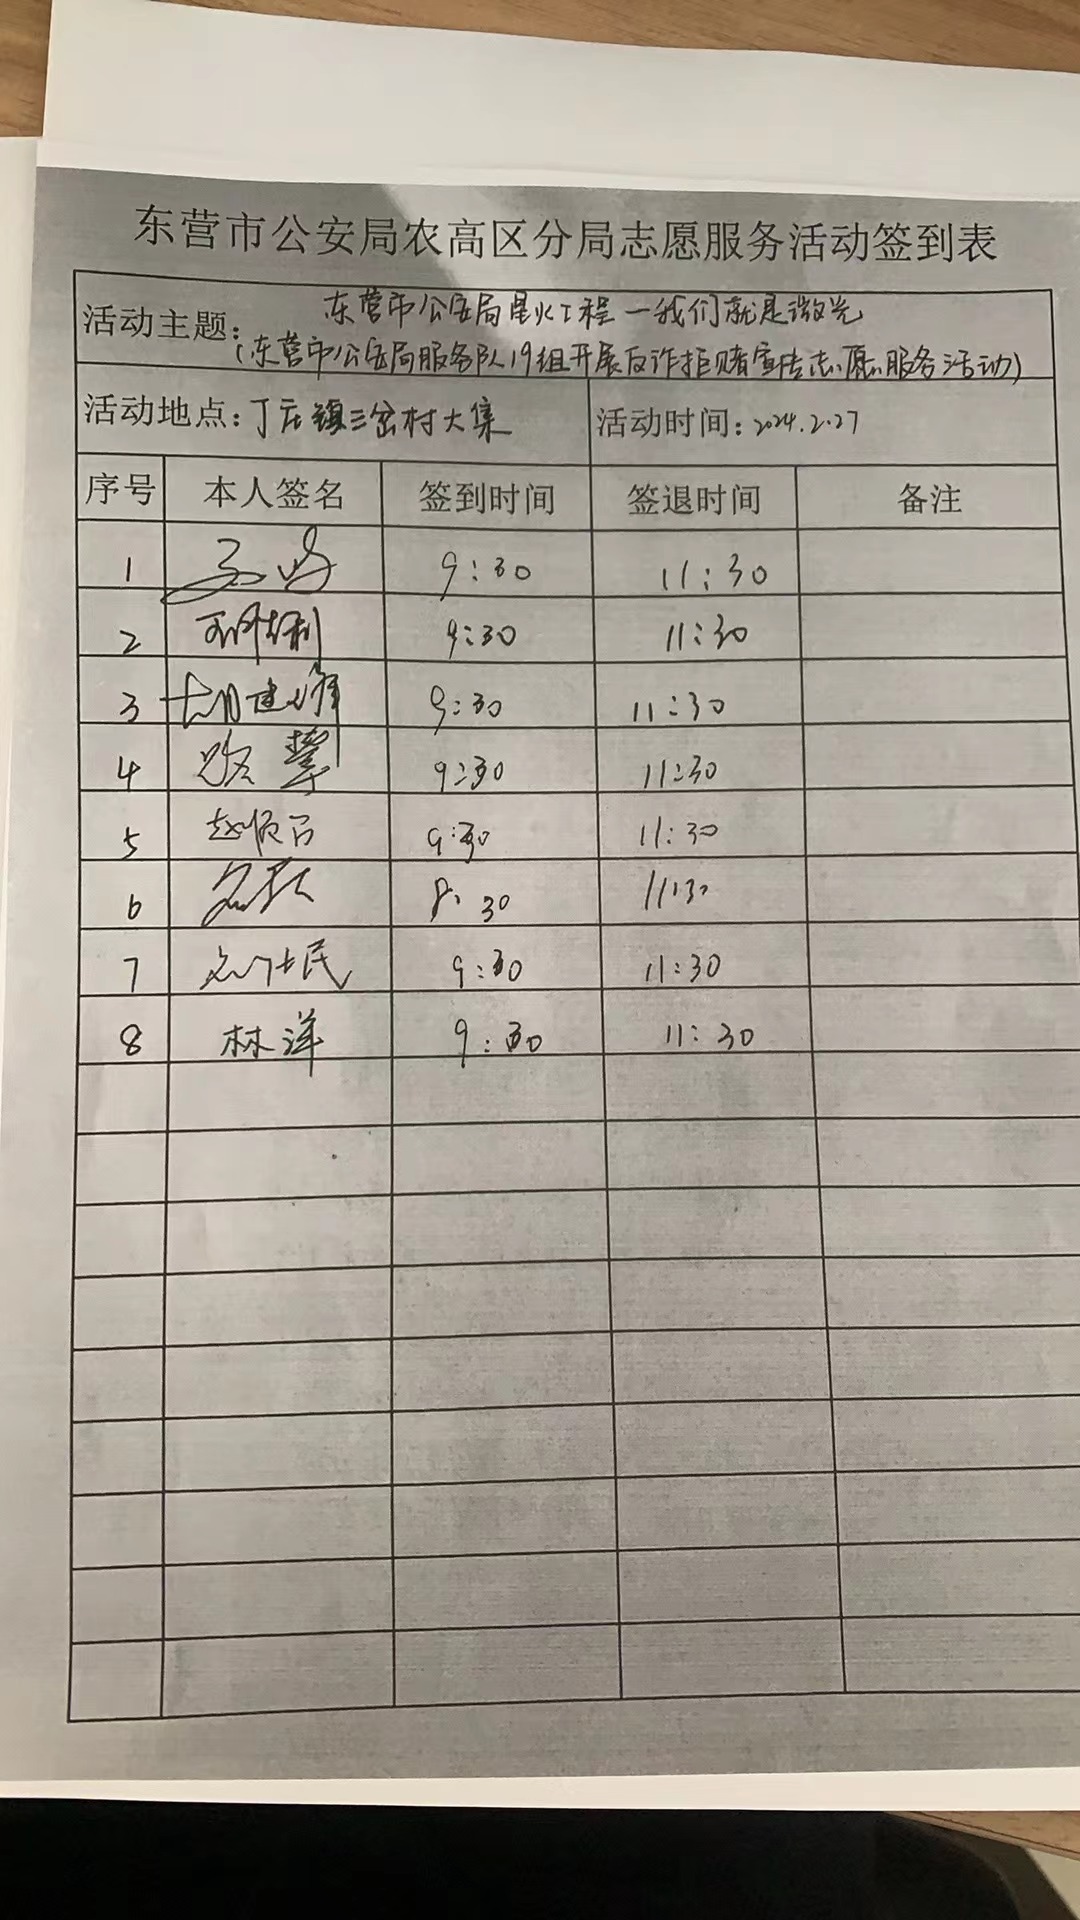 东营市公安局农高区分局志愿服务活动签到表
活动主题: 东营市公安局星火工程—我们就是微光
(东营市公安局服务队19组开展反诈拒赌宣传志愿服务活动)
活动地点: 丁庄镇三岔村大集 活动时间: 2024.2.27
序号 本人签名 签到时间 签退时间 备注
1 9:30 11:30
2 9:30 11:30
3 胡建峰 9:30 11:30
4 9:30 11:30
5 赵顺吉 9:30 11:30
6 8:30 11:30
7 民 9:30 11:30
8 林洋 9:30 11:30